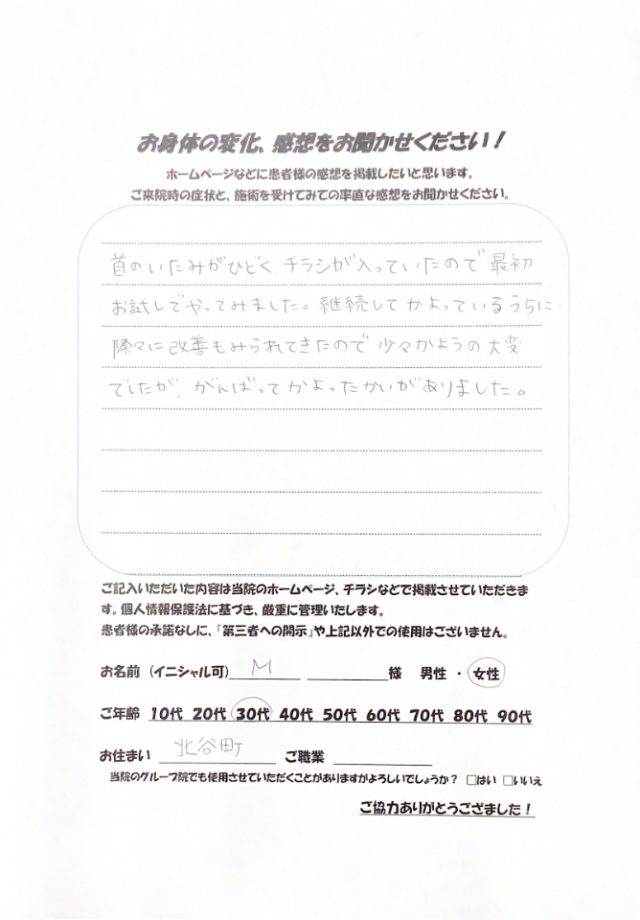 お身体の変化、感想をお聞かせください！
ホームページなどに患者様の感想を掲載したいと思います。
ご来院時の症状と、施術を受けてみての率直な感想をお聞かせください。
首のいたみがひどく、チラシが入っていたので最初
お試しでやってみました。継続してかよっているうちに
除々に改善もみられてきたので、少々かようの大変
でしたが、がんばってかよったかいがありました。
ご記入いただいた内容は当院のホームページ、チラシなどで掲載させていただきま
す。個人情報保護法に基づき、厳重に管理いたします。
患者様の承諾なしに、「第三者への開示」や上記以外での使用はございません。
お名前（イニシャル可） M 様 男性 ・ 女性
ご年齢 10代 20代 30代 40代 50代 60代 70代 80代 90代
お住まい 北谷町 ご職業
当院のグループ院でも使用させていただくことがありますがよろしいでしょうか？ □はい □いいえ
ご協力ありがとうござました！